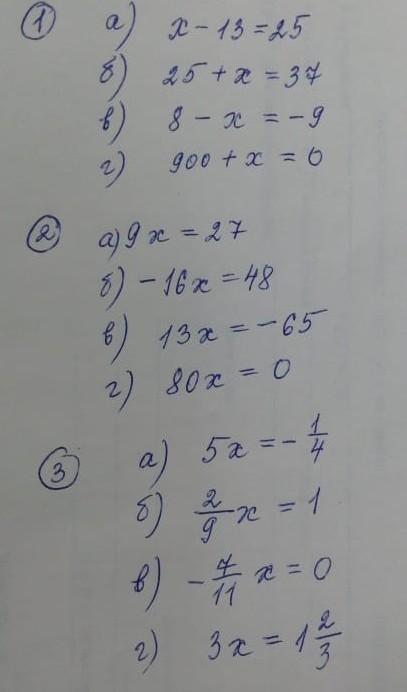 ① а) x - 13 = 25
б) 25 + x = 37
в) 8 - x = -9
г) 900 + x = 0
② а) 9x = 27
б) -16x = 48
в) 13x = -65
г) 80x = 0
③ а) 5x = - 1/4
б) 2/9 x = 1
в) - 7/11 x = 0
г) 3x = 1 2/3